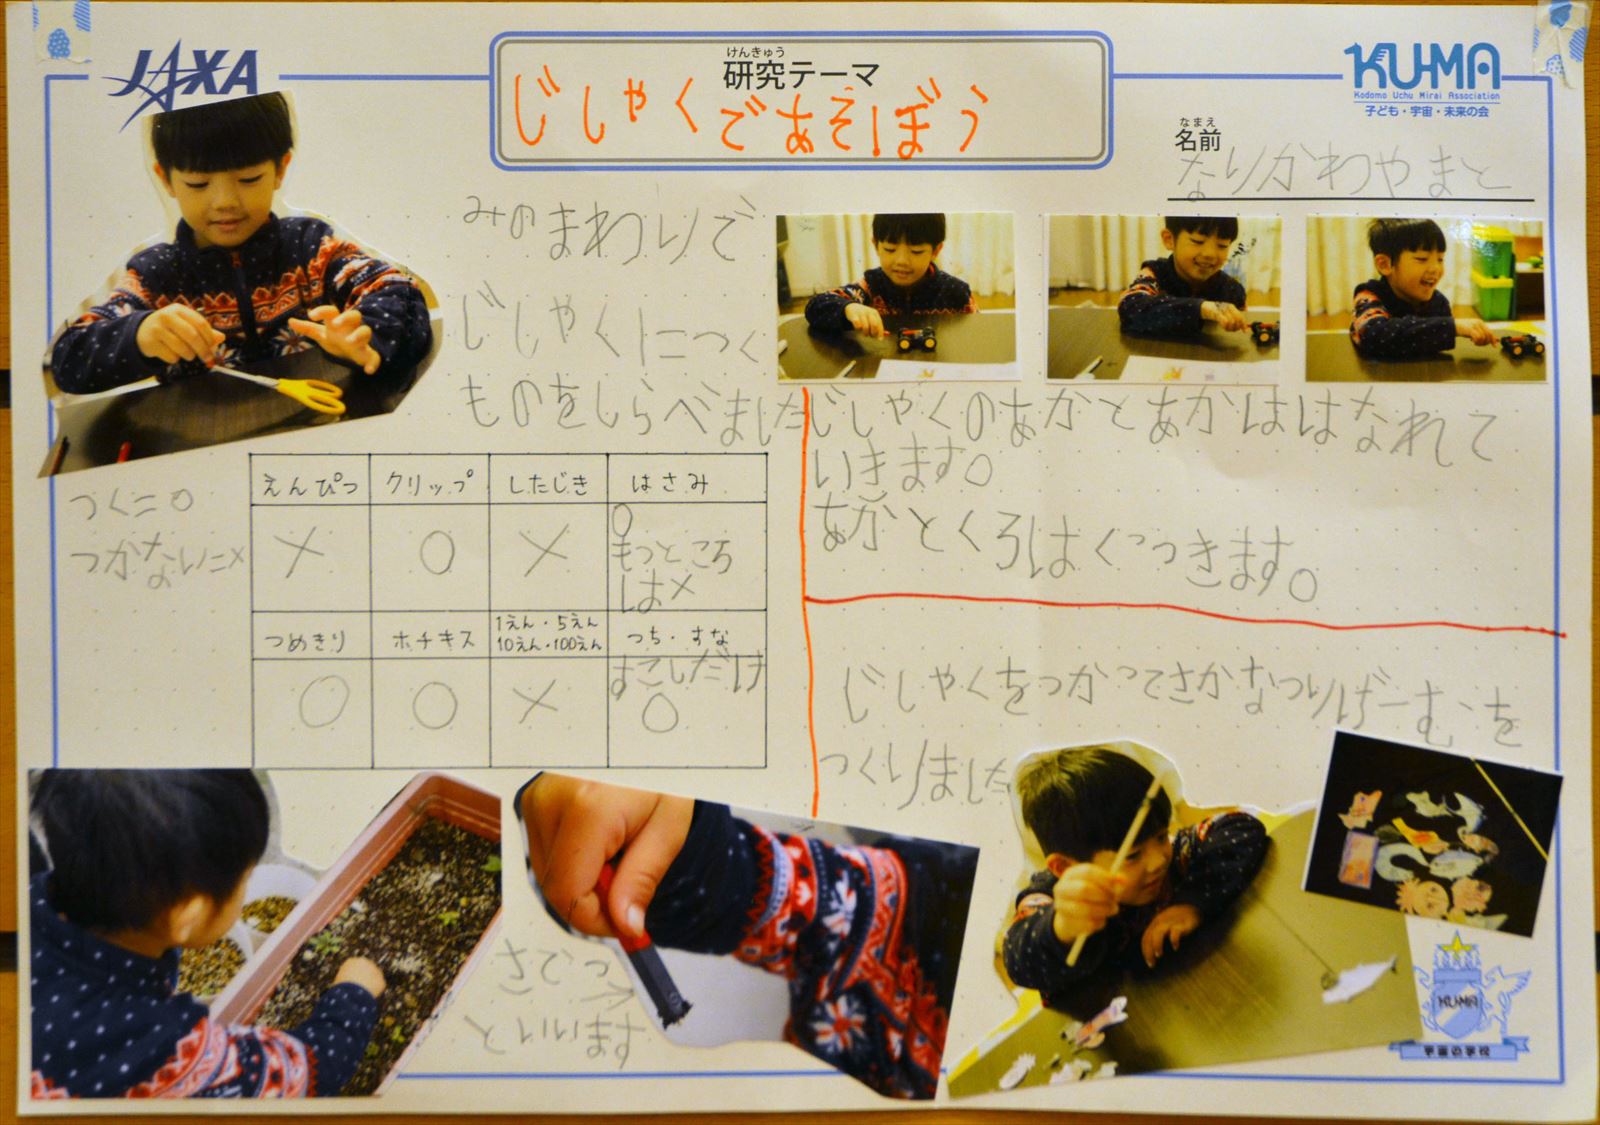 JAXA
けんきゅう
研究テーマ
じしゃくであそぼう
KU-MA
Kodomo Uchu Mirai Association
子ども・宇宙・未来の会
なまえ
名前
なりかわやまと
みのまわりで
じしゃくにつく
ものをしらべました
つく=○
つかない=×
えんぴつ クリップ したじき はさみ
× ○ × ○
もっところ
は×
つめきり ホチキス 1えん・5えん 10えん・100えん つち・すな
○ ○ × すこしだけ
○
さてつ
といいます
じしゃくのあかとあかははなれて
いきます。
あかとくろはくっつきます。
じしゃくをつかってさかなつりげーむを
つくりました
KU-MA